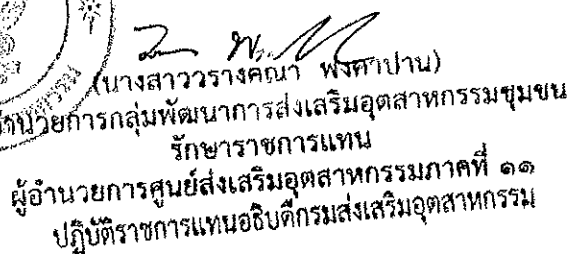 (นางสาววรางคณา พงศาปาน)
อำนวยการกลุ่มพัฒนาการส่งเสริมอุตสาหกรรมชุมชน
รักษาราชการแทน
ผู้อำนวยการศูนย์ส่งเสริมอุตสาหกรรมภาคที่ ๑๑
ปฏิบัติราชการแทนอธิบดีกรมส่งเสริมอุตสาหกรรม